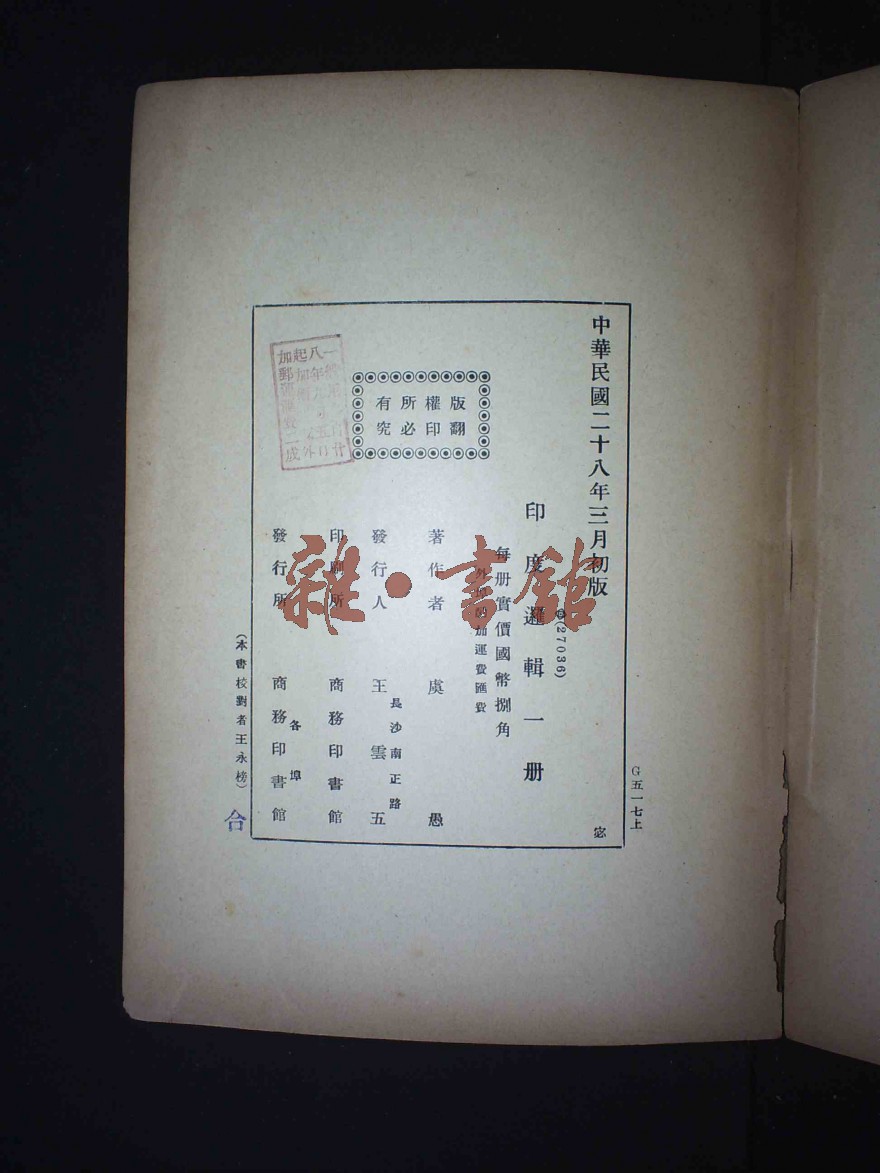 中華民國二十八年三月初版
(27036)
印度邏輯一册
每册實價國幣捌角
外埠酌加運費匯費
版權所有
翻印必究
著作者 虞愚
長沙南正路
發行人 王雲五
印刷所 商務印書館
各埠
發行所 商務印書館
(本書校對者王永榜)
G五一七上
宓
合
加郵運費二成
雜·書館